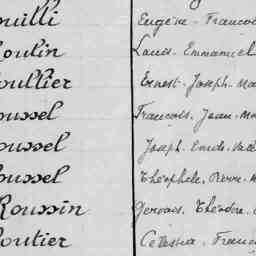 ouillé Eugène - François
Roulin Louis - Emmanuel
oullier Ernest - Joseph - Ma
oussel François, Jean - Ma
oussel Joseph - Emile - 
oussel Théophile, Pierre - M
Roussin Gervais, Théodore -
outier Célestin - Franç